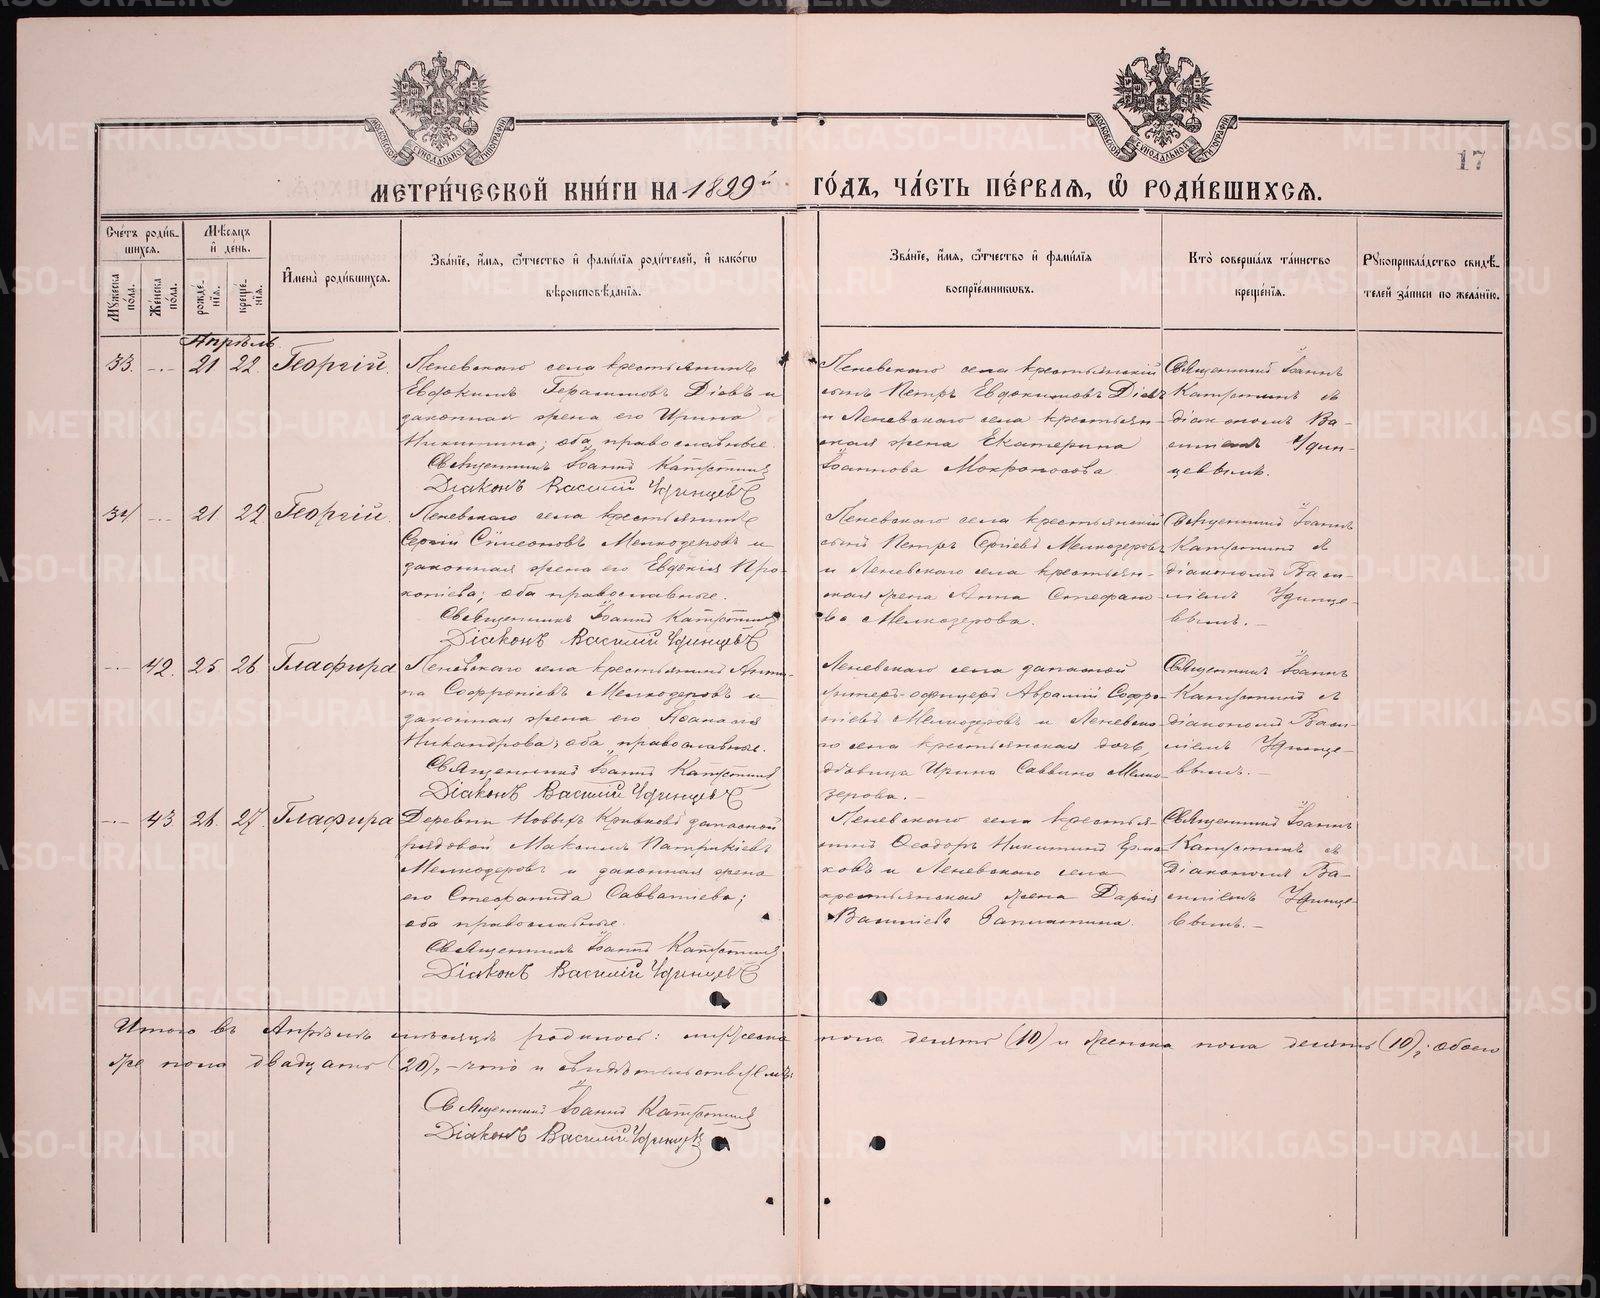 17
МЕТРИ́ЧЕСКОЙ КНИ́ГИ НА 1899й ГО́ДЪ, ЧА́СТЬ ПЕ́РВАЯ, Ѿ РОДИ́ВШИХСЯ.
Сче́тъ роди́в-
шихся.
Му́жеска по́ла.
Же́нска по́ла.
Мѣ́сяцъ и де́нь.
рожде́-нїя.
креще́-нїя.
И҆мена̀ роди́вшихся.
Зва́нїе, и҆́мя, ѻ҆́тчество и҆ фами́лїя роди́телей, и҆ како́гѡ
вѣроисповѣ́данїя.
Зва́нїе, и҆́мя, ѻ҆́тчество и҆ фами́лїя
воспрїе́мникѡвъ.
Кто̀ соверша́лъ та́инство
креще́нїя.
Рꙋкоприкла́дство свидѣ́-
телей за́писи по жела́нїю.
Апрѣль
33. – 21 22 Георгій.
Леневскаго села крестьянинъ
Евдокимъ Герасимовъ Діевъ и
законная жена его Ирина
Никитина; оба православные.
Священникъ Іоаннъ Капустинъ
Діаконъ Василій Удинцевъ
Леневскаго села крестьянскій
сынъ Петръ Евдокимовъ Діевъ
и Леневскаго села крестьян-
ская жена Екатерина
Іоаннова Мокроносова.
Священникъ Іоаннъ
Капустинъ съ
діакономъ Ва-
силіемъ Удин-
цевымъ.
34 – 21 22 Георгій.
Леневскаго села крестьянинъ
Сергій Сѵмеоновъ Мелкозеровъ и
законная жена его Евдокія Про-
копіева; оба православные.
Священникъ Іоаннъ Капустинъ
Діаконъ Василій Удинцевъ
Леневскаго села крестьянскій
сынъ Петръ Сергіевъ Мелкозеровъ
и Леневскаго села крестьян-
ская жена Анна Стефано-
ва Мелкозерова.
Священникъ Іоаннъ
Капустинъ съ
діакономъ Васи-
ліемъ Удинце-
вымъ. –
– 42. 25 26 Глафира
Леневскаго села крестьянинъ Анти-
па Софроніевъ Мелкозеровъ и
законная жена его
Никандрова; оба православные.
Священникъ Іоаннъ Капустинъ
Діаконъ Василій Удинцевъ
Леневскаго села запасной
унтеръ-офицеръ Аврамій Софро-
ніевъ Мелкозеровъ и Леневска-
го села крестьянская дочь,
дѣвица Ирина Саввина Мелко-
зерова. –
Священникъ Іоаннъ
Капустинъ съ
діакономъ Васи-
ліемъ Удинце-
вымъ. –
– 43 26. 27. Глафира
Деревни Новыхъ Кривковъ запасной
рядовой Максимъ Патрикіевъ
Мелкозеровъ и законная жена
его Стефанида Савватіева;
оба православные.
Священникъ Іоаннъ Капустинъ
Діаконъ Василій Удинцевъ
Леневскаго села крестья-
нинъ Ѳеодоръ Никитинъ Ерма-
ковъ и Леневскаго села
крестьянская жена Дарія
Василіева Заплатина.
Священникъ Іоаннъ
Капустинъ съ
діакономъ Ва-
силіемъ Удинце-
вымъ. –
Итого въ Апрѣлѣ мѣсяцѣ родилось: мужеска пола десять (10) и женска пола десять (10); обоего
же пола двадцать (20), – что и свидѣтельствуемъ:
Священникъ Іоаннъ Капустинъ
Діаконъ Василій Удинцевъ
METRIKI.GASO-URAL.RU